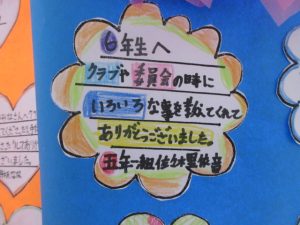 6年生へ
クラブや委員会の時に
いろいろな事を教えてくれて
ありがとうございました。
五年一組